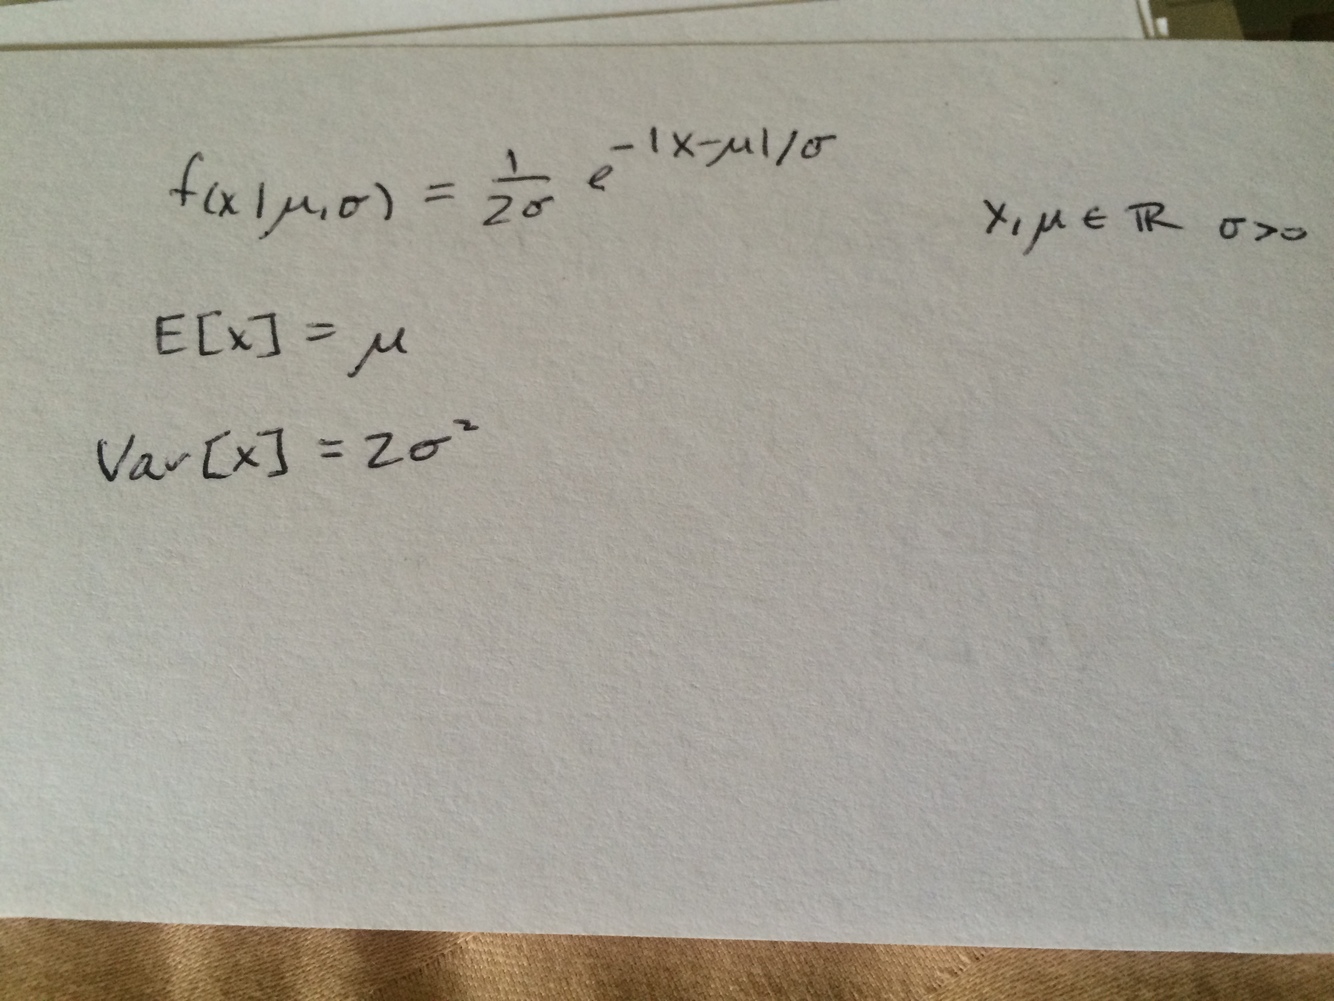 f(x|μ,σ) = 1/2σ e^-|x-μ|/σ
x, μ ∈ ℝ σ>0
E[x] = μ
Var[x] = 2σ²